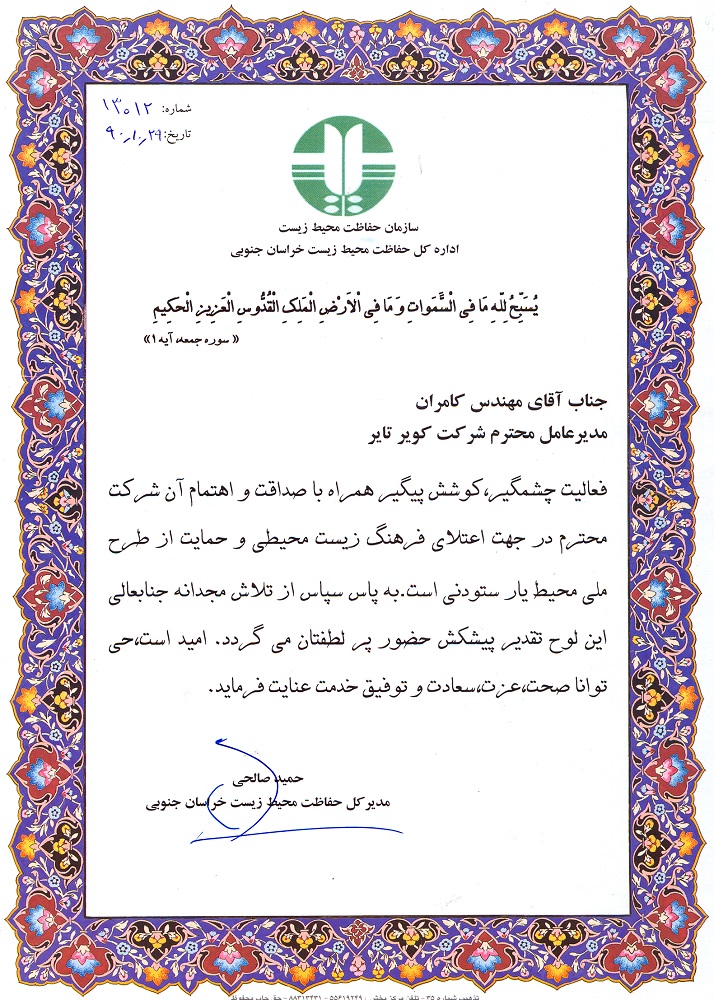 شماره: ۱۳۰۱۲
تاریخ: ۹۰٫۱۰٫۲۹
سازمان حفاظت محیط زیست
اداره کل حفاظت محیط زیست خراسان جنوبی
يُسَبِّحُ لِلّهِ مَا فِي الْسَّمَواتِ وَ مَا فِي الْاَرْضِ الْمَلِكِ الْقُدُّوسِ الْعَزِيزِ الْحَكِيمِ
« سوره جمعه، آیه ۱»
جناب آقای مهندس کامران
مدیرعامل محترم شرکت کویر تایر
فعالیت چشمگیر،کوشش پیگیر همراه با صداقت و اهتمام آن شرکت
محترم در جهت اعتلای فرهنگ زیست محیطی و حمایت از طرح
ملی محیط یار ستودنی است.به پاس سپاس از تلاش مجدانه جنابعالی
این لوح تقدیر پیشکش حضور پر لطفتان می گردد. امید است،حی
توانا صحت،عزت،سعادت و توفیق خدمت عنایت فرماید.
حمید صالحی
مدیرکل حفاظت محیط زیست خراسان جنوبی
تذهیب شماره ۳۵ - تلفن مرکز پخش : ۵۵۶۱۹۲۴۹ - ۸۸۳۱۳۴۳۱ - حق چاپ محفوظ